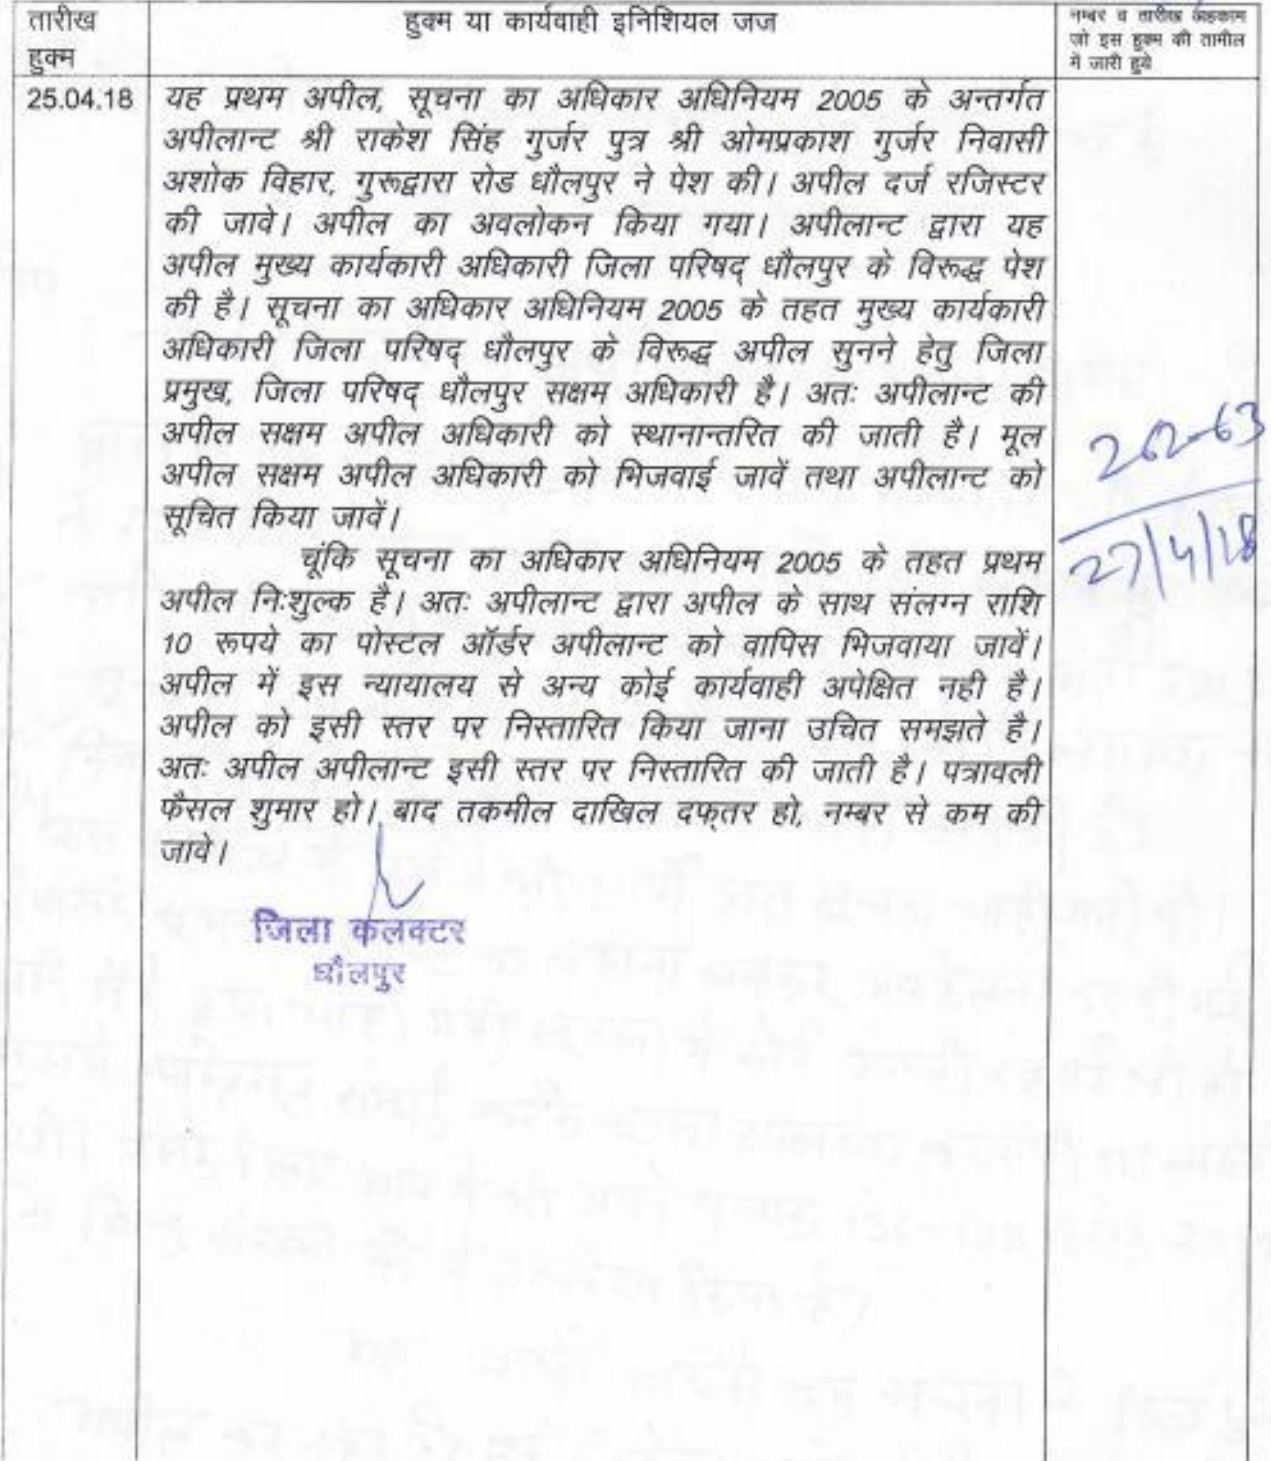 तारीख
हुक्म
हुक्म या कार्यवाही इनिशियल जज
नम्बर व तारीख अहकाम
जो इस हुक्म की तामील
में जारी हुये
25.04.18
यह प्रथम अपील, सूचना का अधिकार अधिनियम 2005 के अन्तर्गत
अपीलान्ट श्री राकेश सिंह गुर्जर पुत्र श्री ओमप्रकाश गुर्जर निवासी
अशोक विहार, गुरूद्वारा रोड धौलपुर ने पेश की। अपील दर्ज रजिस्टर
की जावे। अपील का अवलोकन किया गया। अपीलान्ट द्वारा यह
अपील मुख्य कार्यकारी अधिकारी जिला परिषद् धौलपुर के विरूद्ध पेश
की है। सूचना का अधिकार अधिनियम 2005 के तहत मुख्य कार्यकारी
अधिकारी जिला परिषद् धौलपुर के विरूद्ध अपील सुनने हेतु जिला
प्रमुख, जिला परिषद् धौलपुर सक्षम अधिकारी है। अतः अपीलान्ट की
अपील सक्षम अपील अधिकारी को स्थानान्तरित की जाती है। मूल
अपील सक्षम अपील अधिकारी को भिजवाई जावें तथा अपीलान्ट को
सूचित किया जावें।
चूंकि सूचना का अधिकार अधिनियम 2005 के तहत प्रथम
अपील निःशुल्क है। अतः अपीलान्ट द्वारा अपील के साथ संलग्न राशि
10 रूपये का पोस्टल ऑर्डर अपीलान्ट को वापिस भिजवाया जावें।
अपील में इस न्यायालय से अन्य कोई कार्यवाही अपेक्षित नही है।
अपील को इसी स्तर पर निस्तारित किया जाना उचित समझते है।
अतः अपील अपीलान्ट इसी स्तर पर निस्तारित की जाती है। पत्रावली
फैसल शुमार हो। बाद तकमील दाखिल दफ्तर हो, नम्बर से कम की
जावे।
262-63
27/4/18
जिला कलक्टर
धौलपुर